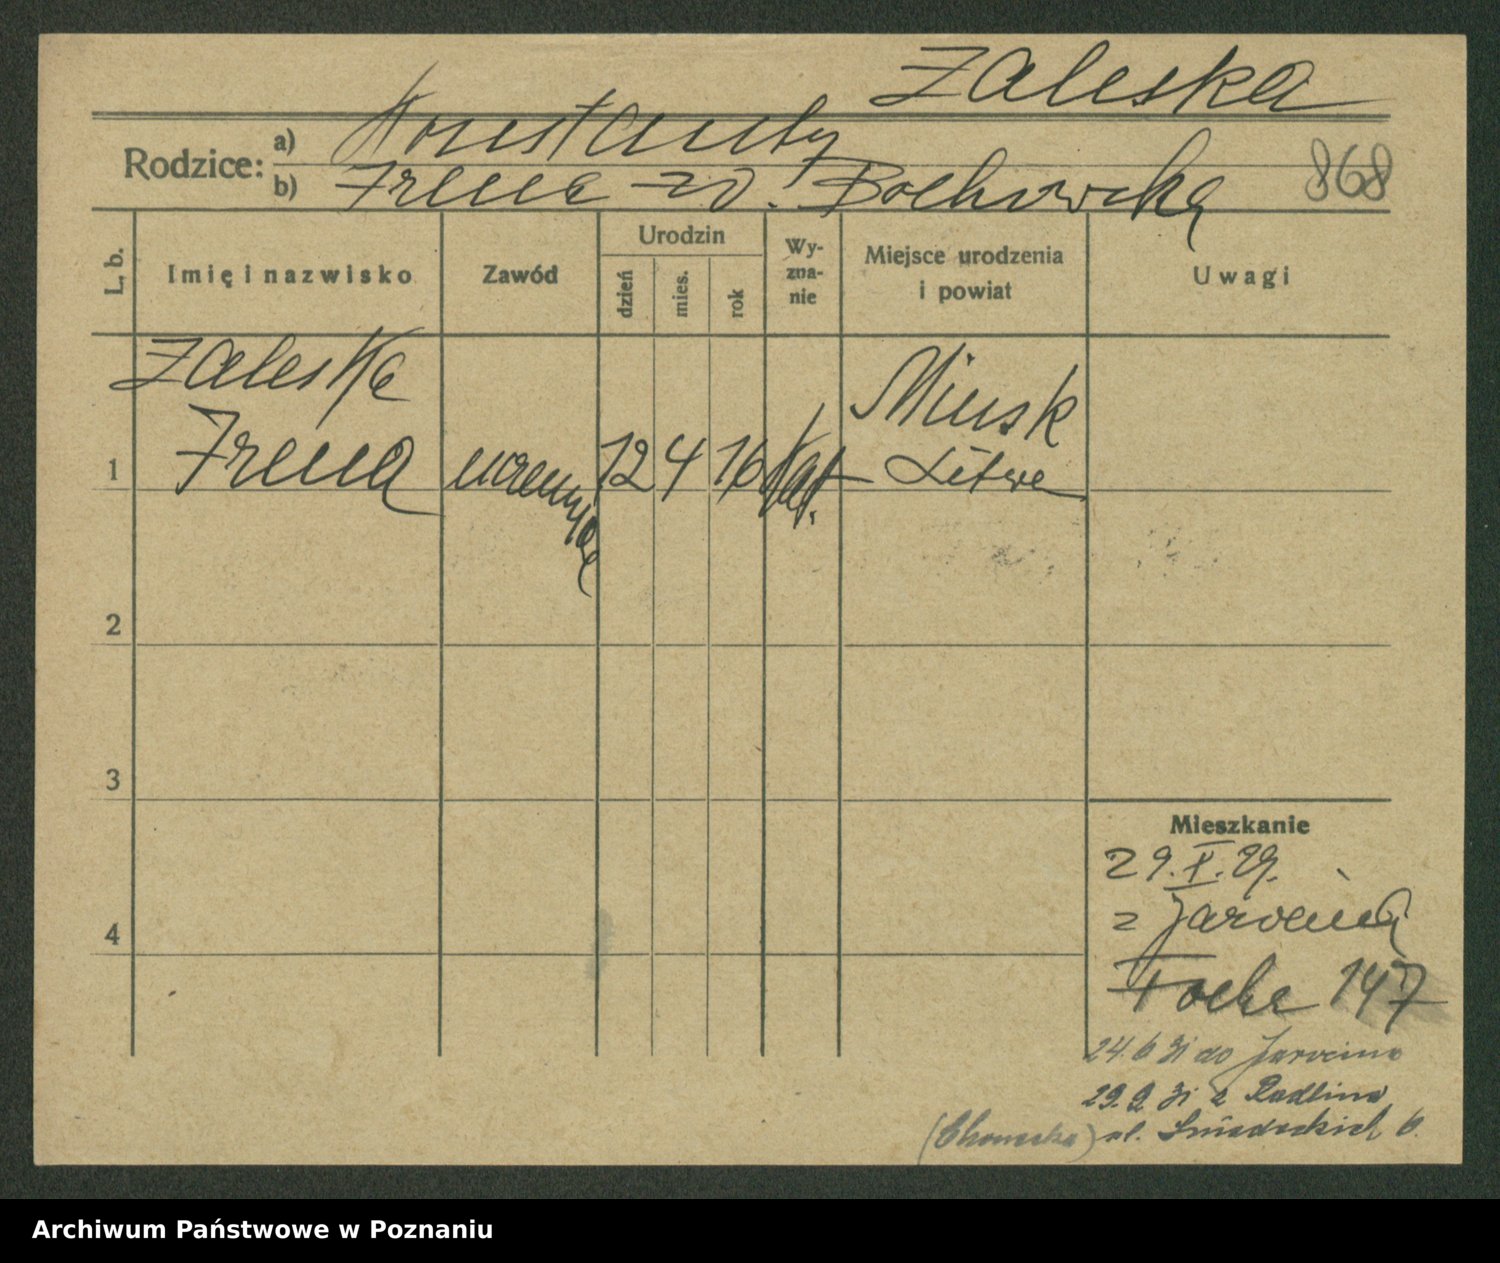 Zaleska
Rodzice: a) Konstanty
b) Irena zd. Bochowską
868
L. b.
Imię i nazwisko
Zawód
Urodzin
dzień
mies.
rok
Wy-
zna-
nie
Miejsce urodzenia
i powiat
Uwagi
Zaleska
Irena
1
uczennica
12 4 16
kat.
Minsk
Litwa
2
3
4
Mieszkanie
29.X.29.
z Jarocina
Focha 147
24.6 31 do Jarocina
29.9 31 z Radlina
ul. Śniadeckich 6.
Archiwum Państwowe w Poznaniu